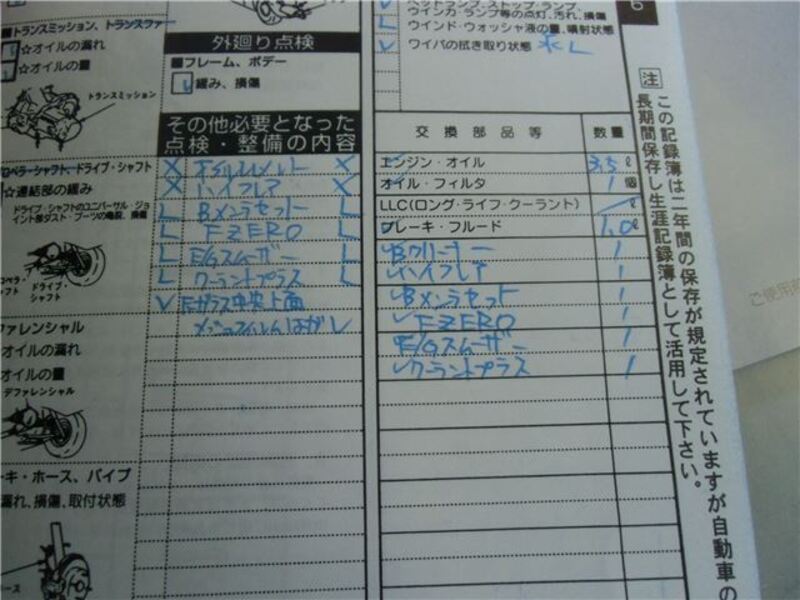 ■トランスミッション、トランスファ
☆オイルの漏れ
☆オイルの量
トランスミッション
ロペラ・シャフト、ドライブ・シャフト
☆連結部の緩み
ドライブ・シャフトのユニバーサル・ジョ
イント部ダスト・ブーツの亀裂、損傷
ロペラ・
フト
ドライブ・
シャフト
ファレンシャル
オイルの漏れ
オイルの量
デファレンシャル
ーキ・ホース、パイプ
漏れ、損傷、取付状態
ース
外廻り点検
■フレーム、ボデー
レ 緩み、損傷
その他必要となった
点検・整備の内容
X オイルエレメント X
X ハイフレア X
L Bメンテセット L
L FZERO L
L E/Gスムーザー L
L クーラントプラス L
V Fガラス中央上面
メッシュフィルムはがし
ウインカ・ランプ等の点灯、汚れ、損傷
L ウインド・ウォッシャ液の量、噴射状態
レ ワイパの拭き取り状態
6
交換部品等 数量
エンジン・オイル 3.5 ℓ
オイル・フィルタ 1 個
LLC(ロング・ライフ・クーラント) ℓ
ブレーキ・フルード 1.0 ℓ
Bクリーナー 1
ハイフレア 1
Bメンテセット 1
FZERO 1
E/Gスムーザー 1
クーラントプラス 1
注
この記録簿は二年間の保存が規定されていますが自動車の
長期間保存し生涯記録簿として活用して下さい。
ご使用